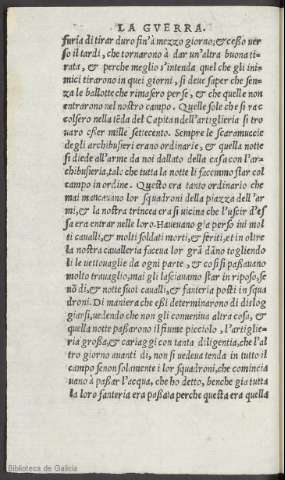 LA GVERRA.
furia di tirar duro fin'à mezzo giorno; & ceßò ver
so il tardi, che tornarono à dar un'altra buona ti-
rata, & perche meglio s'intenda quel che gli ini-
mici tirarono in quei giorni, si deue saper che sen-
za le ballotte che rimasero perse, & che quelle non
entrarono nel nostro campo. Quelle sole che si rac
colsero nella tēda del Capitan dell'artiglieria si tro
uaro esser mille settecento. Sempre le scaramuccie
degli archibusieri erano ordinarie, & quella notte
si diede all'arme da noi dallato della casa con l'ar-
chibusieria, tal che tutta la notte li facemmo star col
campo in ordine. Questo era tanto ordinario che
mai mancauano lor squadroni della piazza dell'ar
mi, & la nostra trincea era sì uicina che l'uscir d'es
sa era entrar nelle loro. Haueuano già perso iui mol
ti caualli, & molti soldati morti, & feriti, et in oltre
la nostra caualleria faceua lor grā dāno togliendo
li le uettouaglie da ogni parte, & così si paßauano
molto trauaglio, mai gli lasciauamo star in riposo, se
nō dì, & notte suoi caualli, & fanteria posti in squa
droni. Di maniera che eßi determinarono di dislog
giarsi, uedendo che non gli conueniua altra cosa, &
quella notte paßarono il fiume picciolo, l'artiglie-
ria großa, & cariaggi con tanta diligentia, che l'al
tro giorno auanti dì, non si uedeua tenda in tutto il
campo se non solamente i lor squadroni, che comincia
uano à paßar l'acqua, che ho detto, benche già tutta
la loro fanteria era paßata perche questa era quella
Biblioteca de Galicia